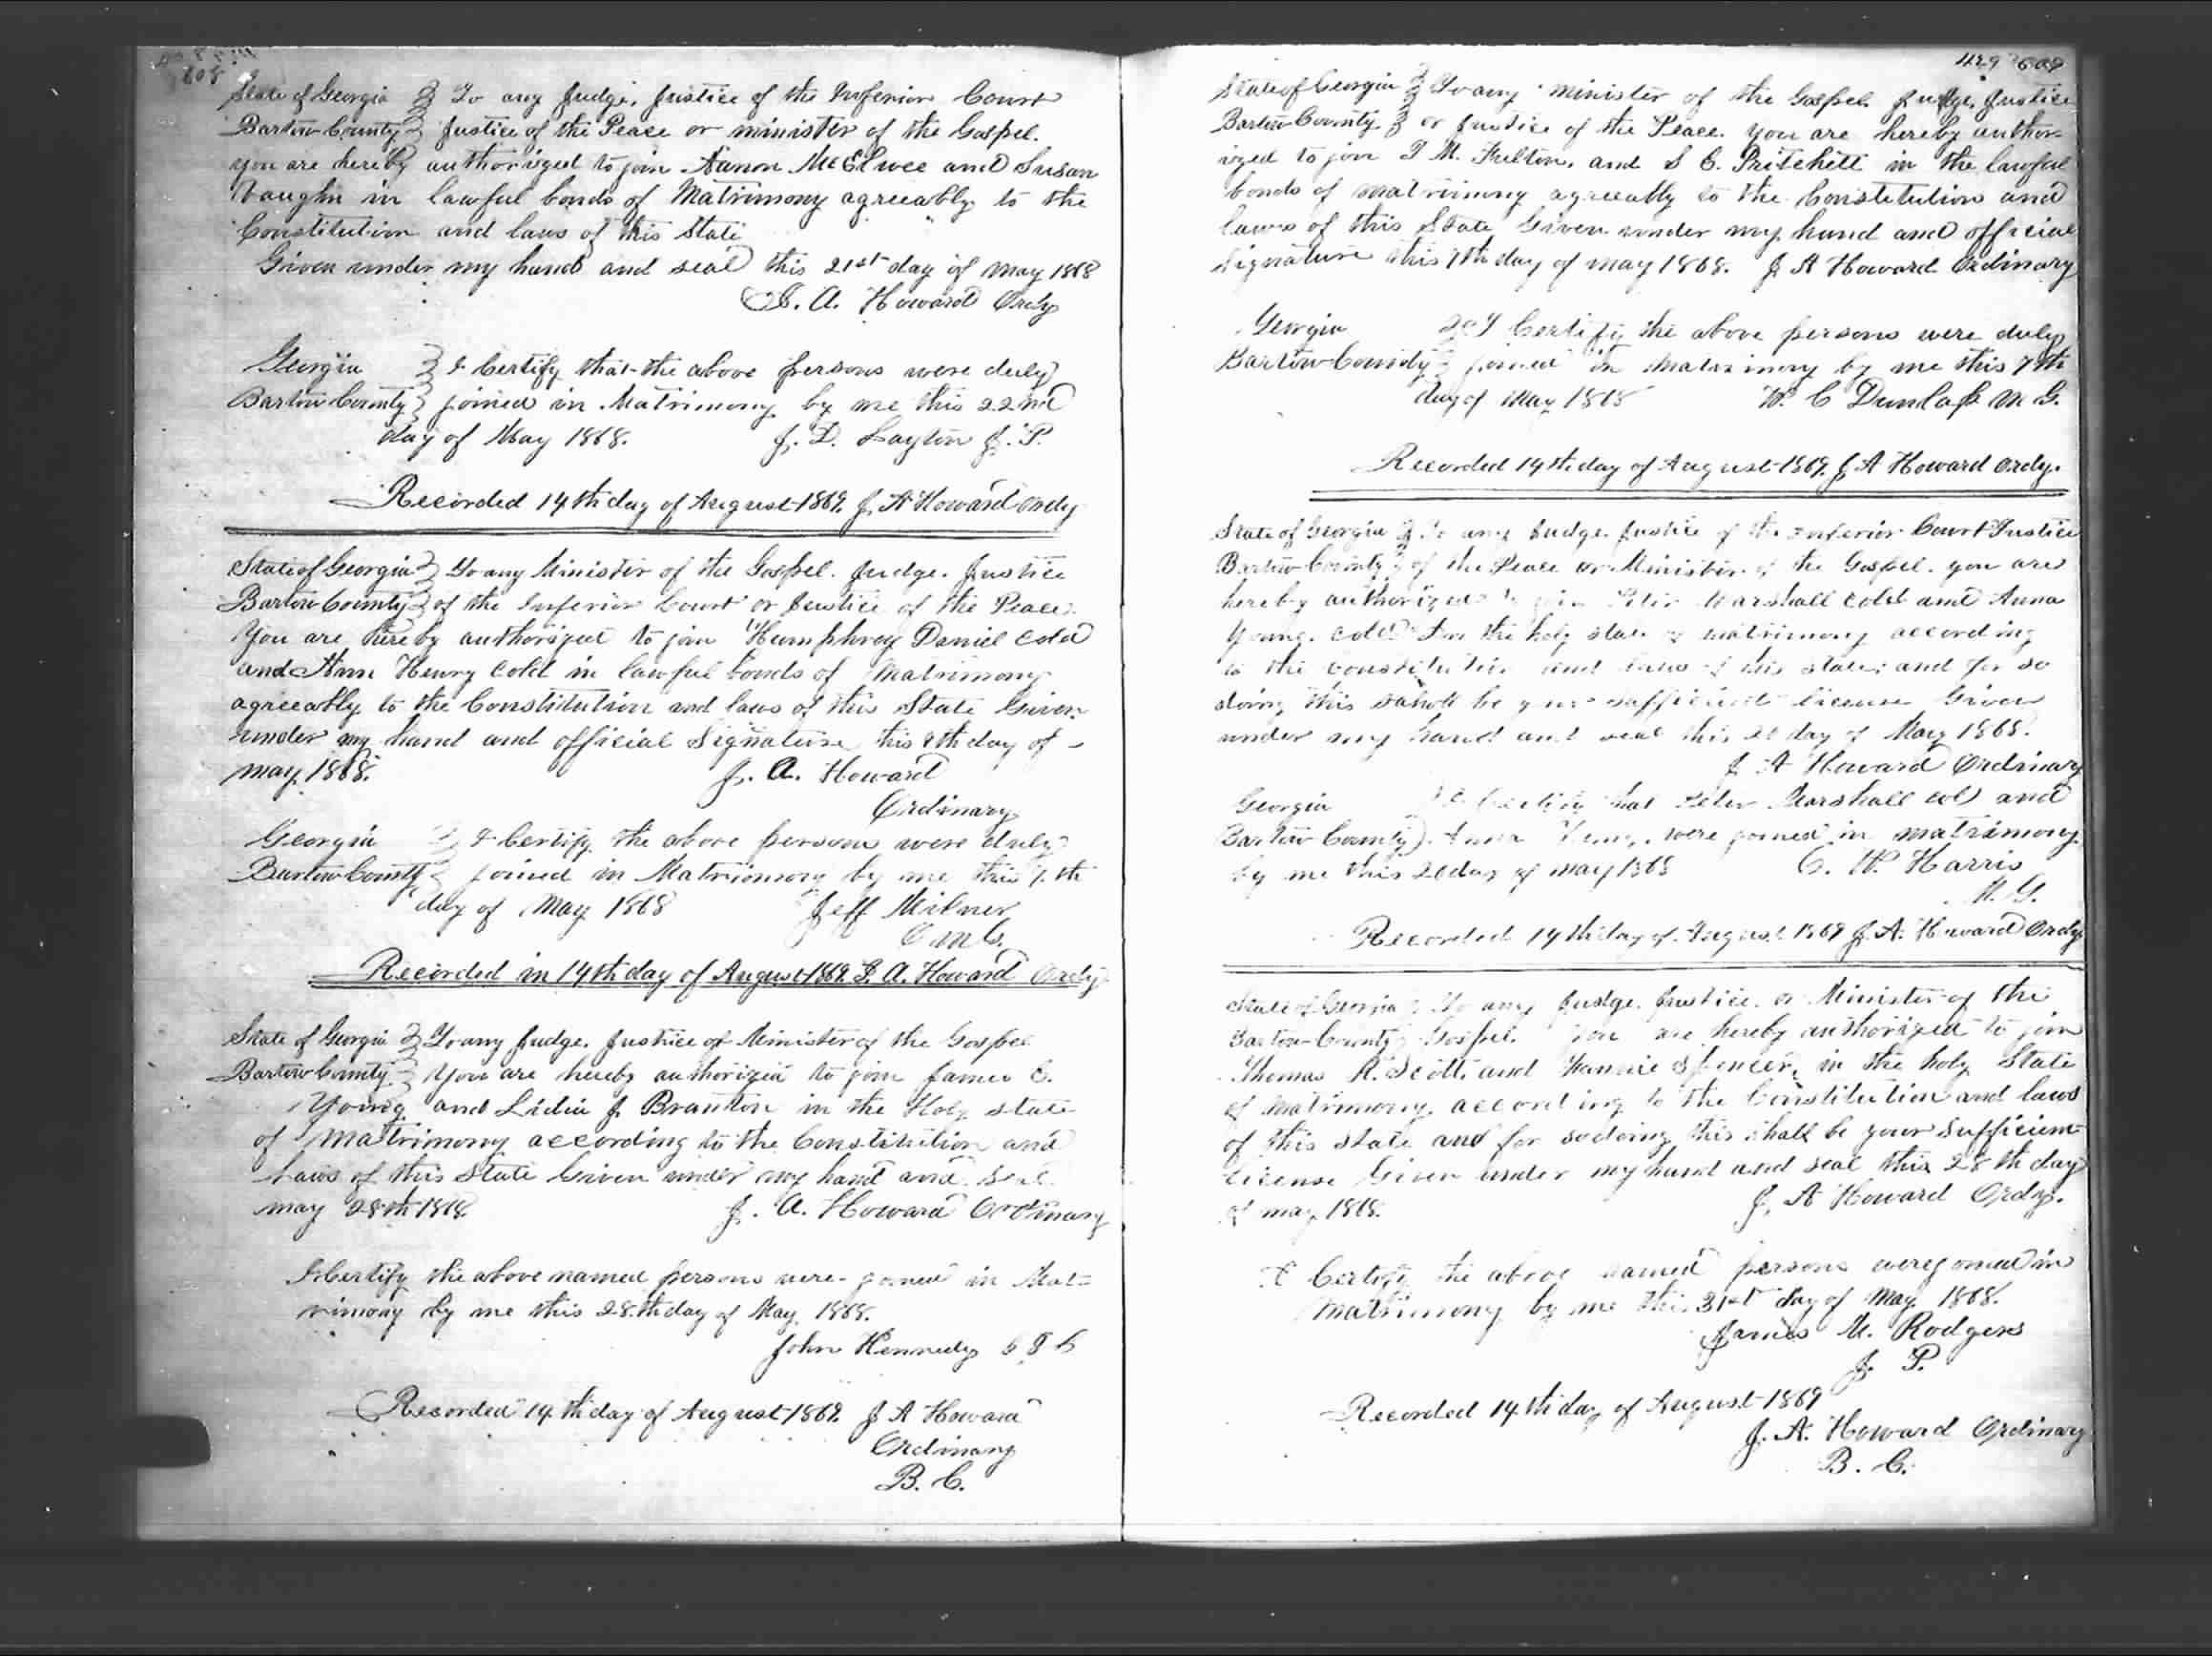 608
State of Georgia } To any Judge, Justice of the Inferior Court
Bartow County } Justice of the Peace or minister of the Gospel.
you are hereby authorized to join Aaron McElwee and Susan
Vaughn in lawful bonds of Matrimony agreeably to the
Constitution and laws of this State
Given under my hand and seal this 21st day of May 1868
J. A. Howard Ordy
Georgia } I Certify that the above persons were duly
Bartow County } joined in Matrimony by me this 22nd
day of May 1868. J. D. Layton J. P.
Recorded 14th day of August 1869. J. A Howard Ordy
State of Georgia } To any Minister of the Gospel. Judge. Justice
Bartow County } of the Inferior Court or Justice of the Peace.
You are hereby authorized to join Humphrey Daniel cold
and Ann Henry cold in lawful bonds of Matrimony
agreeably to the Constitution and laws of this State Given
under my hand and official Signature this day of
May 1868. J. A. Howard
Ordinary
Georgia } I Certify the above persons were duly
Bartow County } joined in Matrimony by me this
day of May 1868 Jeff Milner
Recorded in 14th day of August 1869. J. A. Howard Ordy
State of Georgia } To any Judge. Justice or Minister of the Gospel
Bartow County } You are hereby authorized to join James C.
Young and Lidia J. Branton in the Holy state
of Matrimony according to the Constitution and
Laws of this State Given under my hand and seal
may 28th 1868. J. A. Howard Ordinary
I Certify the above named persons were joined in Mat=
rimony by me this 28th day of May 1868.
John Kennedy
Recorded 14th day of August 1869. J A Howard
Ordinary
B. C.
429 609
State of Georgia } To any minister of the Gospel Judge, Justice
Bartow County } or Justice of the Peace. you are hereby author-
ized to join M. Fulton, and S C. Pritchett in the lawful
bonds of matrimony agreeably to the Constitution and
laws of this State Given under my hand and official
Signature this 7th day of may 1868. J A Howard Ordinary
Georgia I Certify the above persons were duly
Bartow County } joined in Matrimony by me this 7th
day of May 1868 W. C Dunlap M G.
Recorded 14th day of August 1869. J A Howard Ordy.
State of Georgia } To any Judge. Justice of the Inferior Court Justice
Bartow County } of the Peace or Minister of the Gospel. you are
hereby authorized to join Peter Marshall cold and Anna
Young. cold in the holy state of matrimony according
to the constitution and laws of this state; and for so
doing this shall be your sufficient license Given
under my hand and seal this 20 day of May 1868.
J A Howard Ordinary
Georgia I Certify that Peter Marshall col and
Bartow County } Anna Young, were joined in matrimony
by me this 20 day of may 1868 C. W. Harris
M. G.
Recorded 14th day of August 1869 J. A. Howard Ordy
State of Georgia } To any Judge. Justice. or Minister of the
Bartow County } Gospel. You are hereby authorized to join
Thomas R. Scott, and Fannie Spencer, in the holy State
of Matrimony, according to the Constitution and laws
of this state and for sodoing this shall be your Sufficient
License Given under my hand and seal this 28th day
of may 1868. J. A Howard Ordy.
I Certify the above named persons were joined in
Matrimony by me this 31st day of May 1868.
James M. Rodgers
J. P.
Recorded 14th day of August 1869
J. A. Howard Ordinary
B. C.